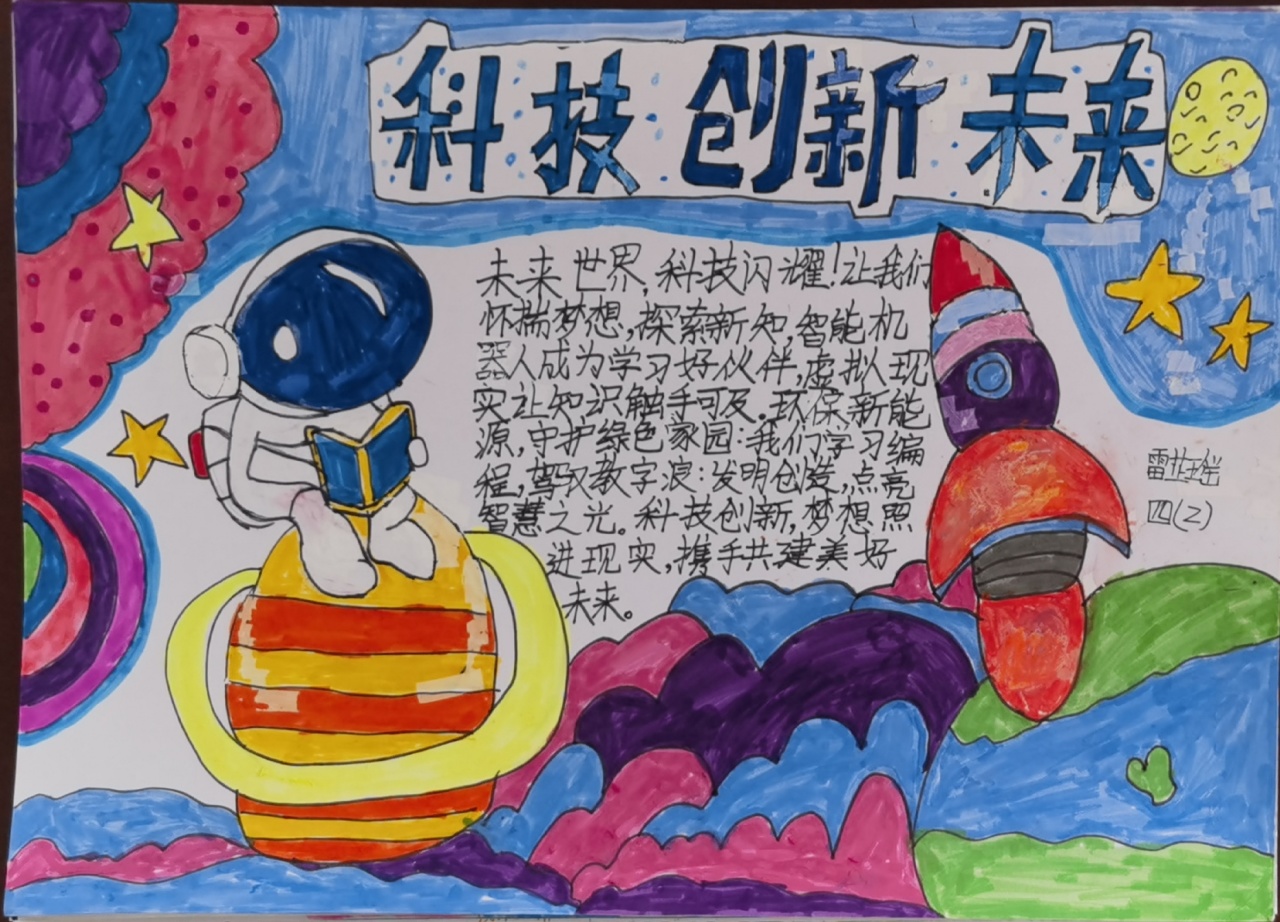 科技 创新 未来
未来世界,科技闪耀!让我们
怀揣梦想,探索新知,智能机
器人成为学习好伙伴,虚拟现
实让知识触手可及.环保新能
源,守护绿色家园:我们学习编
程,驾驭数字浪:发明创造,点亮
智慧之光。科技创新,梦想照
进现实,携手共建美好
未来。
雷
四(2)